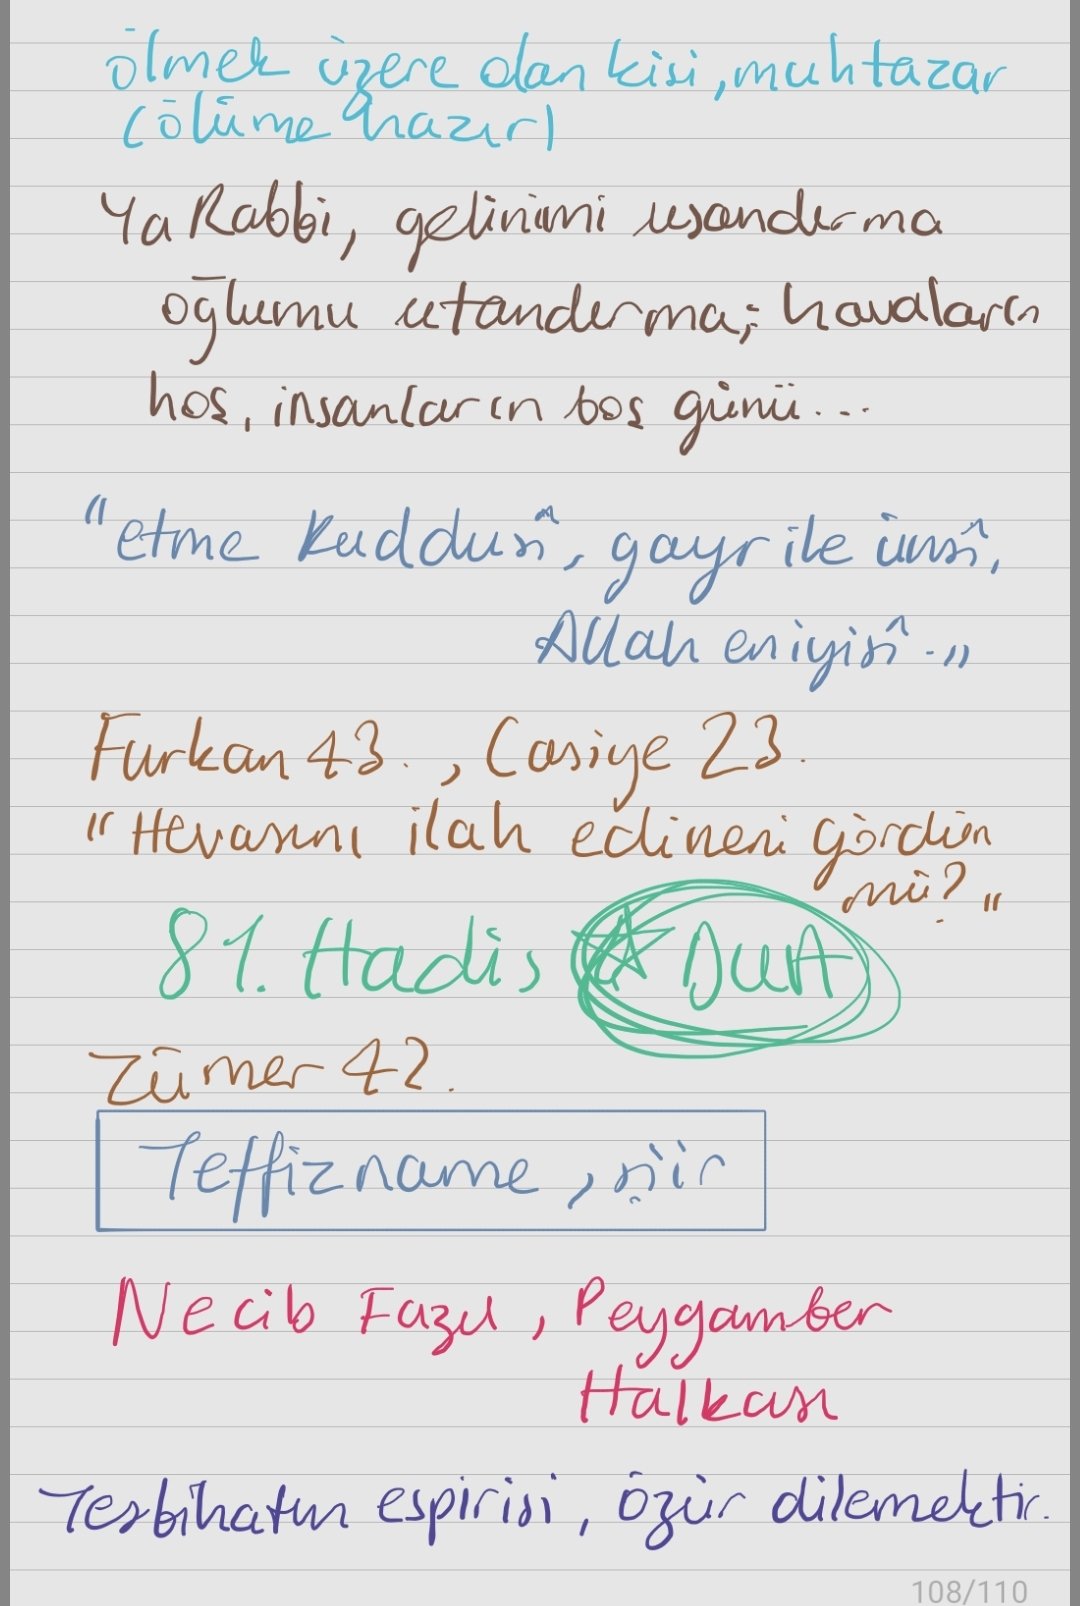 ölmek üzere olan kişi, muhtazar
(ölüme hazır)
Ya Rabbi, gelinimi usandırma
oğlumu utandırma; havaların
hoş, insanların boş günü...
"etme Kuddusî, gayr ile ünsî,
Allah en iyisî."
Furkan 43., Casiye 23.
"Hevasını ilah edineni gördün
mü?"
81. Hadis ☆ DUA
Zümer 42.
Teffizname, şiir
Necib Fazıl, Peygamber
Halkası
Tesbihatın espirisi, özür dilemektir.
108/110